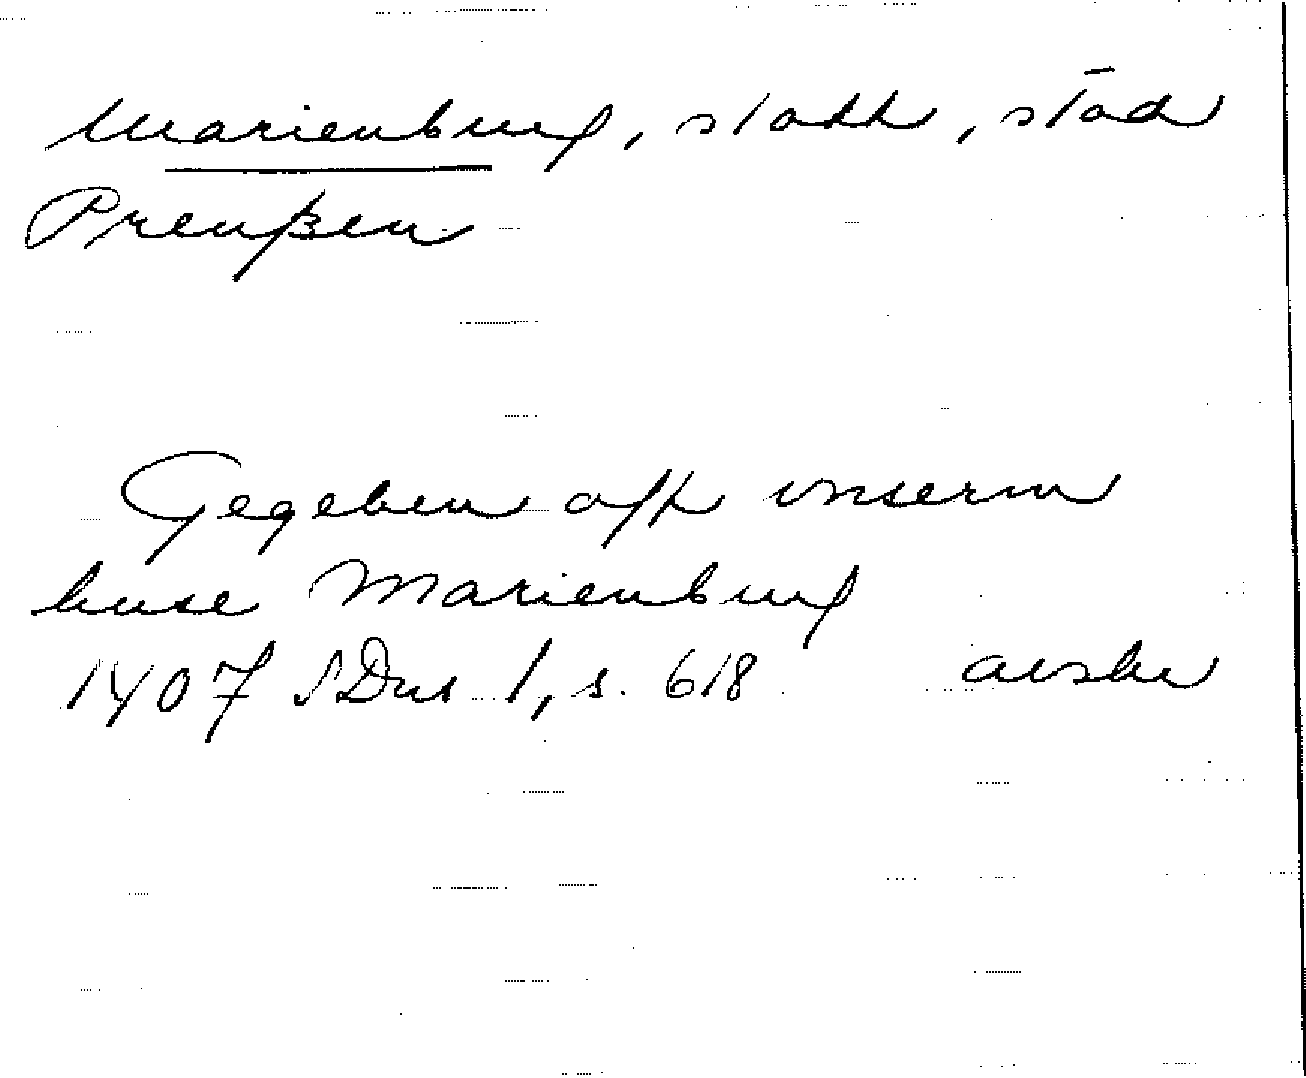 Marienburg, slott, stad
Preußen
Gegeben off unserm
huse Marienburg
1407 SDns 1, s. 618 avskr